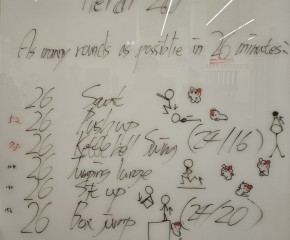 As many rounds as possible in 26 minutes:
26 Squat
26 Push up
26 Kettlebell Swing (24/16)
26 Jumping lunge
26 Sit up
26 Box jump (24/20)